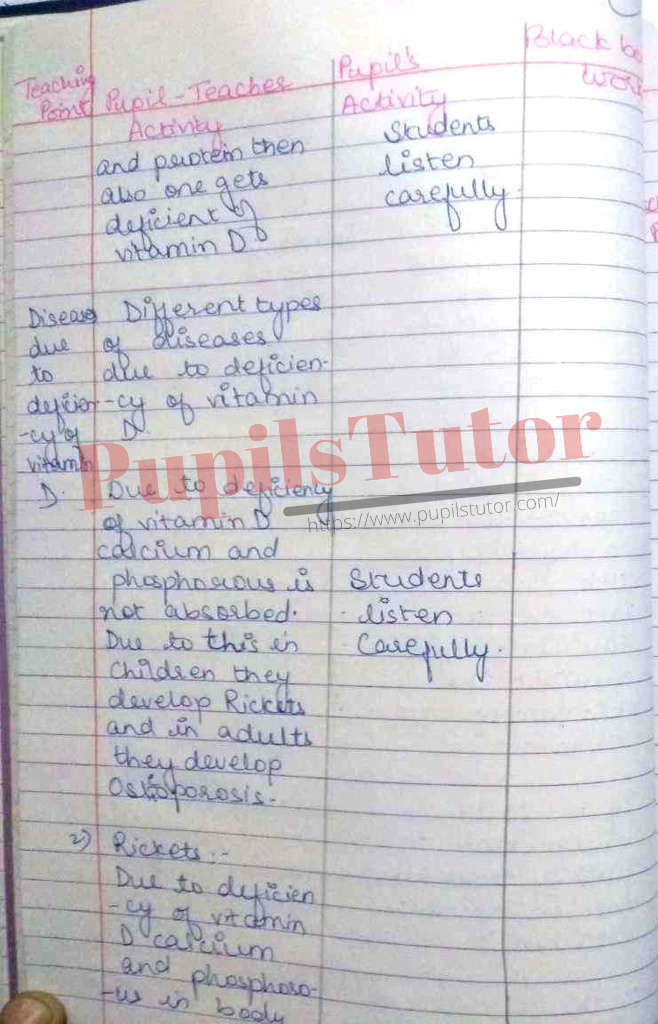 Teaching Point
Pupil-Teaches Activity
Pupil's Activity
Black bo
work
and protein then
also one gets
deficient of
vitamin D
Students
listen
carefully.
Diseases
due
to
deficien
-cy of
vitamin
D.
Different types
of diseases
due to deficien-
-cy of vitamin
D.
Due to deficiency
of vitamin D
calcium and
phosphorous is
not absorbed.
Due to this in
children they
develop Rickets
and in adults
they develop
Ostoporosis.
Students
listen
Carefully.
2) Rickets:-
Due to deficien
-cy of vitamin
D calcium
and phosphoro-
-us in body
PupilsTutor
https://www.pupilstutor.com/